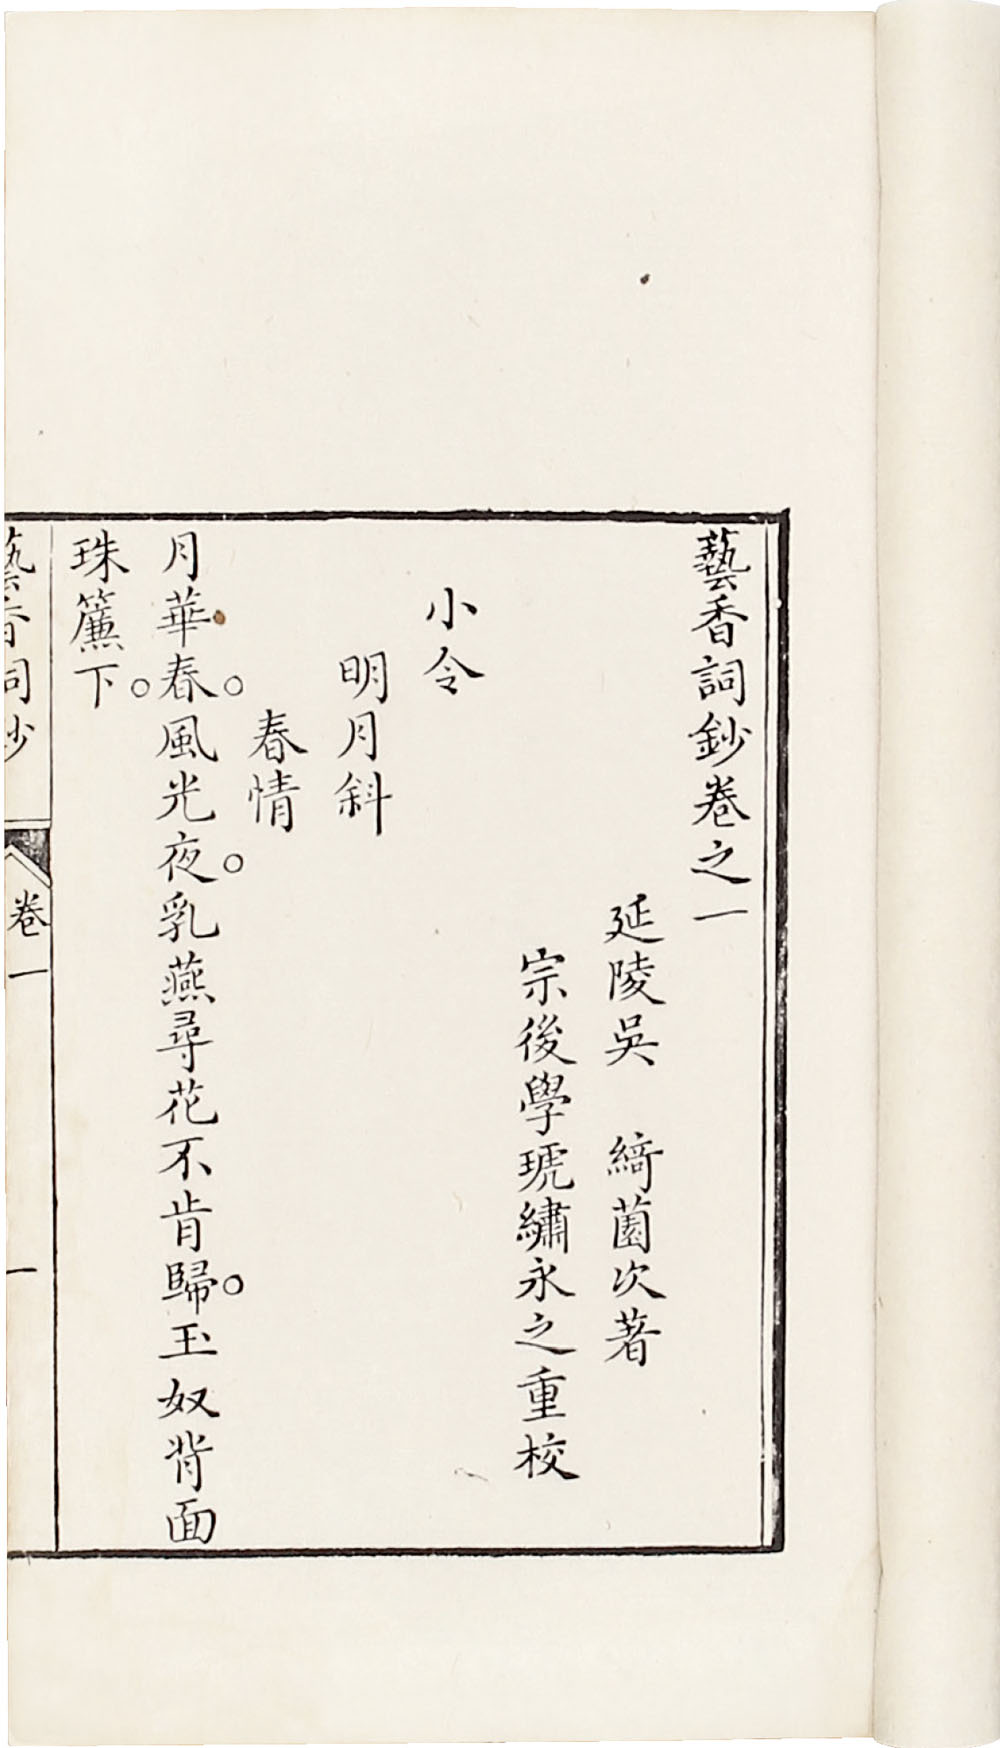 藝香詞鈔卷之一
延陵吳　綺薗次著
宗後學琥繡永之重校
小令
明月斜
春情
月華春。風光夜。乳燕尋花不肯歸。玉奴背面
珠簾下。
藝香詞鈔
卷一
一